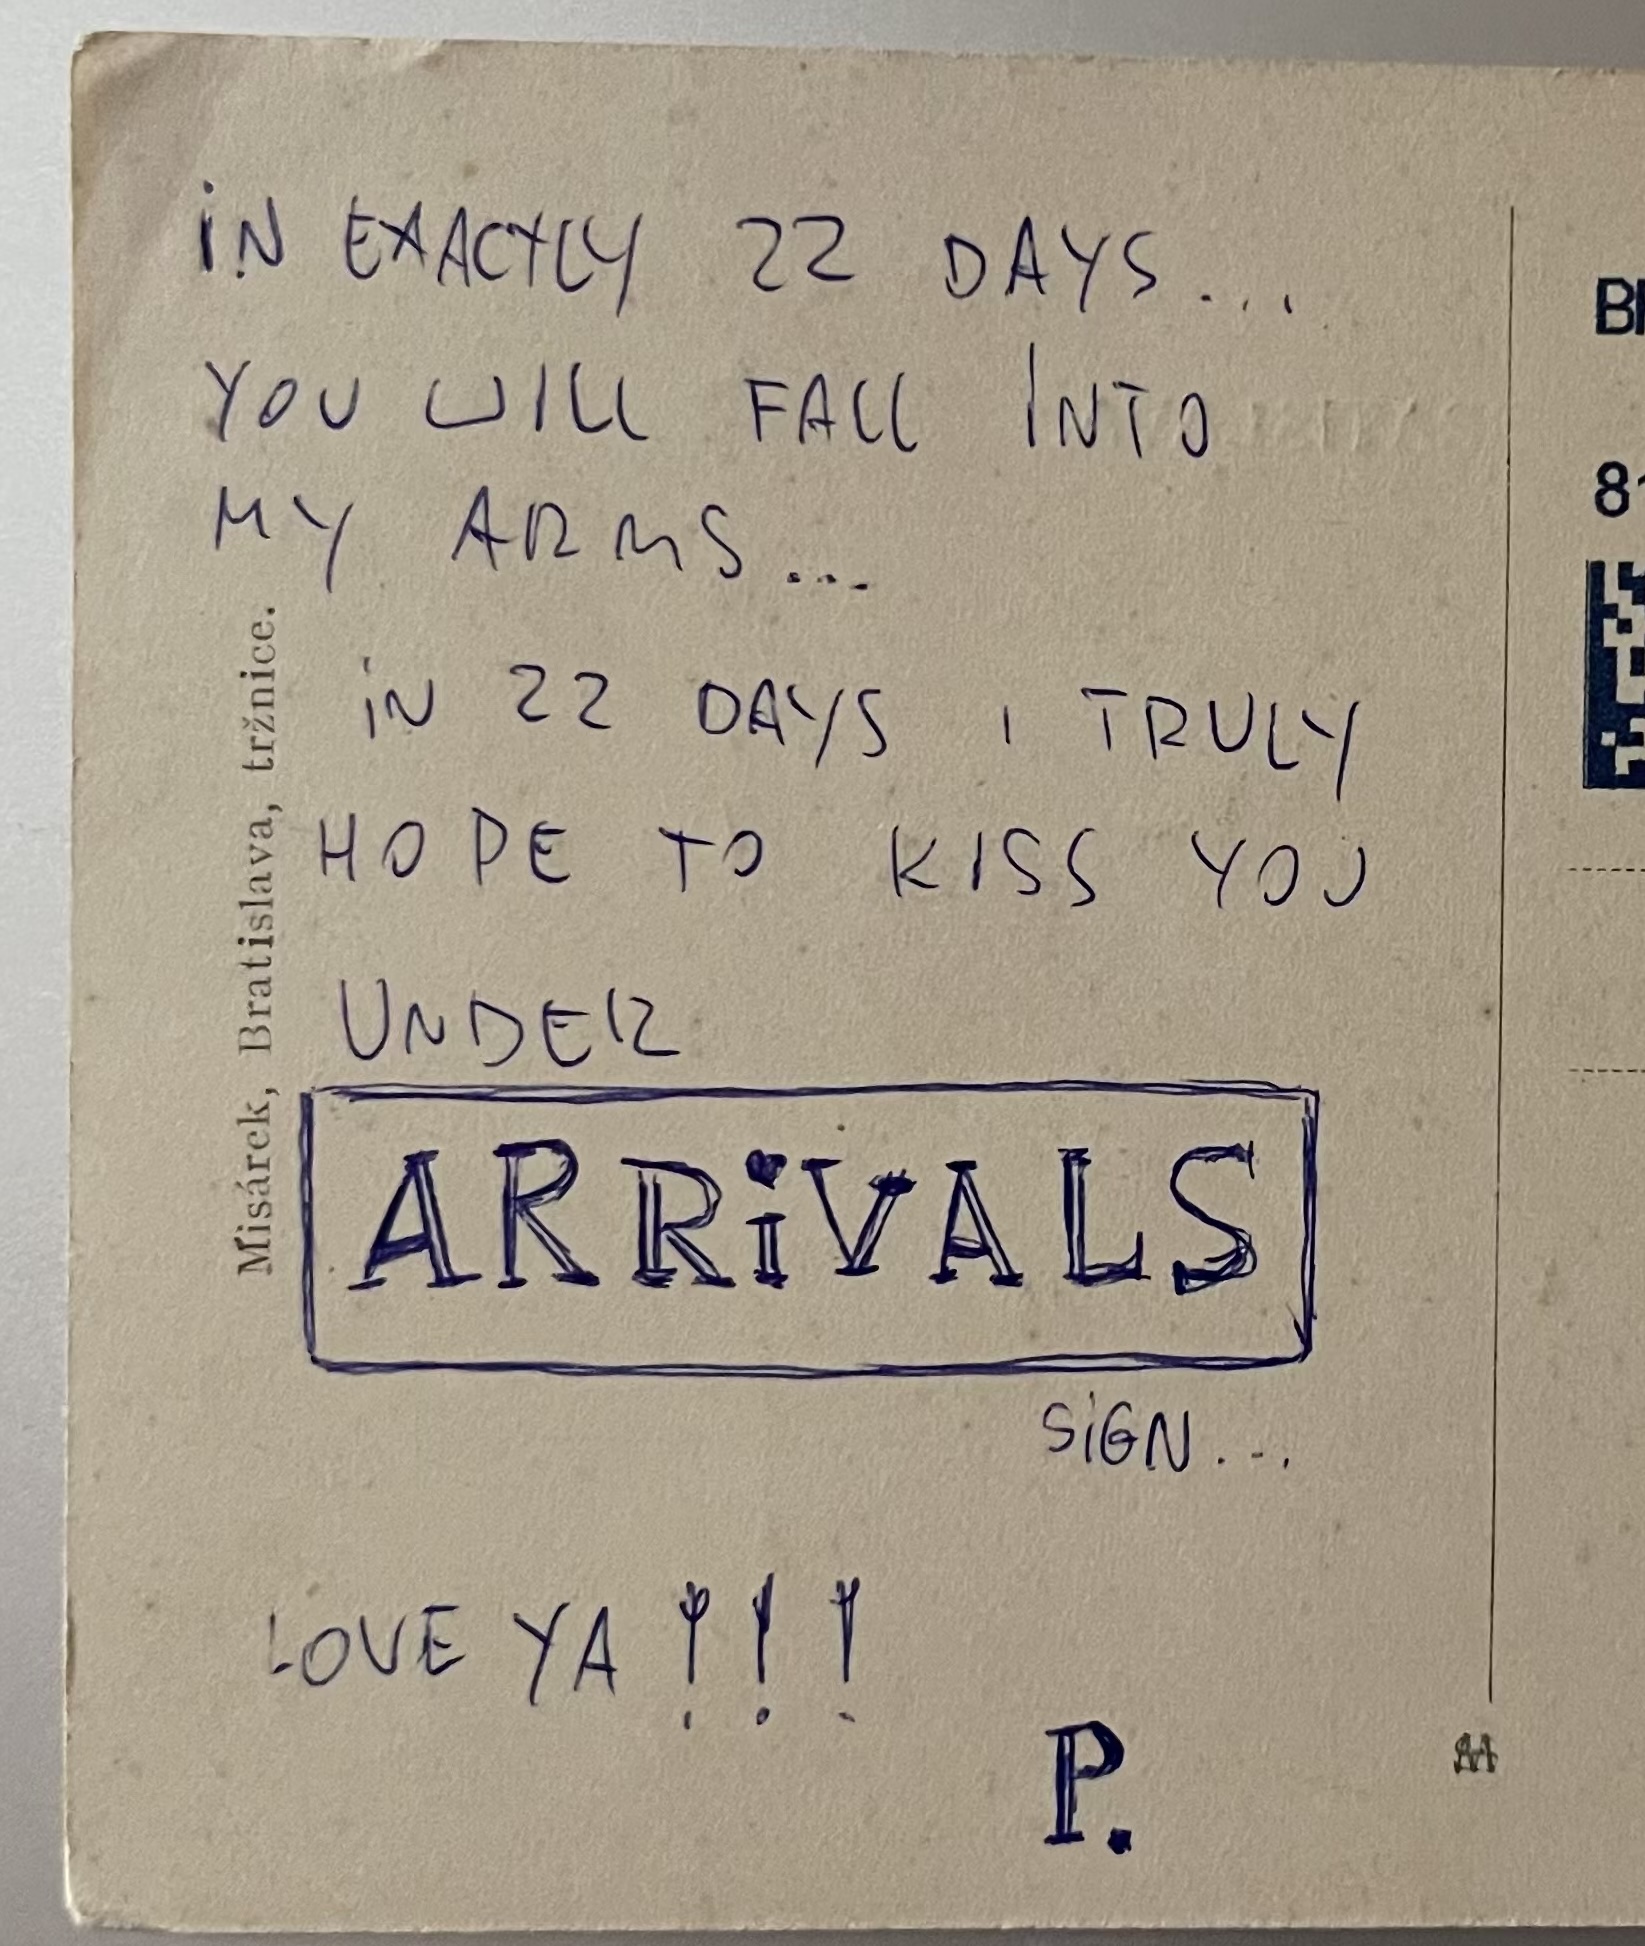 iN EXACTLY 22 DAYS...
YOU WILL FALL INTO
MY ARMS...
iN 22 DAYS I TRULY
HOPE TO KISS YOU
UNDER
ARRiVALS
SiGN...
LOVE YA !!!
P.
Misárek, Bratislava, tržnice.